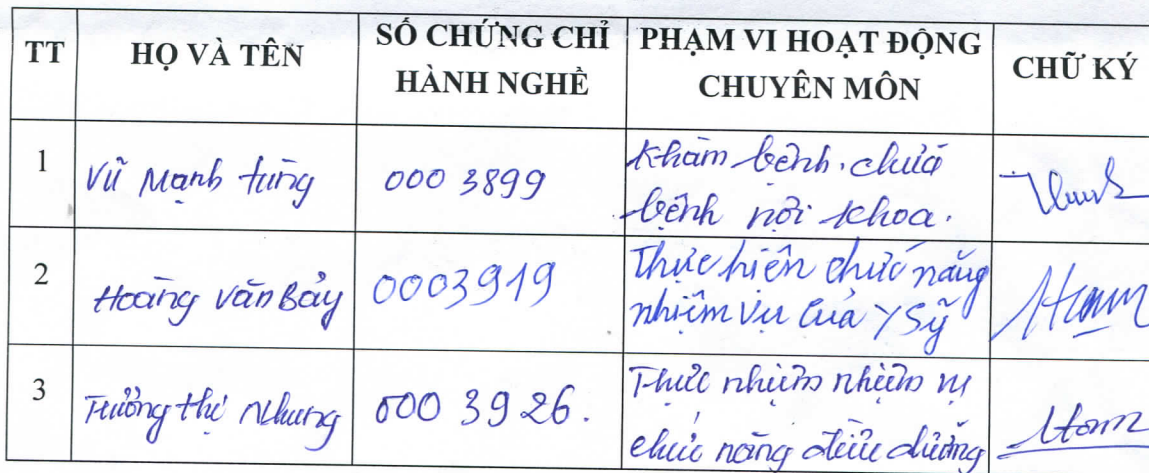 TT HỌ VÀ TÊN SỐ CHỨNG CHỈ HÀNH NGHỀ PHẠM VI HOẠT ĐỘNG CHUYÊN MÔN CHỮ KÝ
1 Vũ Mạnh tùng 000 3899 Khám bệnh, chữa
bệnh nội khoa.
2 Hoàng Văn Bảy 0003919 Thực hiện chức năng
nhiệm vụ của Y Sỹ
3 Trương thị Nhung 000 3926. Thực nhiệm nhiệm vụ
chức năng điều dưỡng